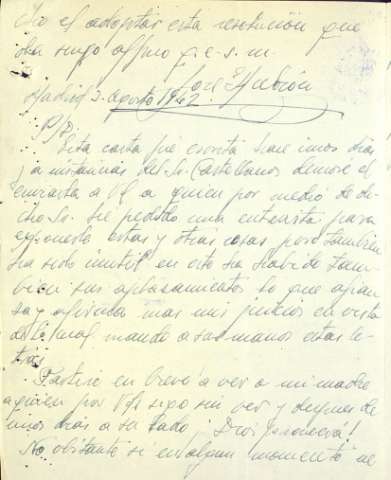 do el adoptar esta resolución que
ha suyo affmo q.e.s.m.
José
Madrid 3. agosto 1942
P/D.
Esta carta fué escrita hace unos días
y a instancias del Sr. Castellanos demoré el
enviarla a Vd. a quien por medio de di-
cho Sr. he pedido una entrevista para
exponerle estas y otras cosas pero también
ha sido inutil en esto ha habido tam-
bién sus aplazamientos lo que afian-
za y afirma mas mis juicios en vista
de lo cual mando a sus manos estas le-
tras.
Partiré en breve a ver a mi madre
a quien por Vds sigo sin ver y despues de
unos dias a su lado ¡Dios proveerá!
No obstante si en algun momento me